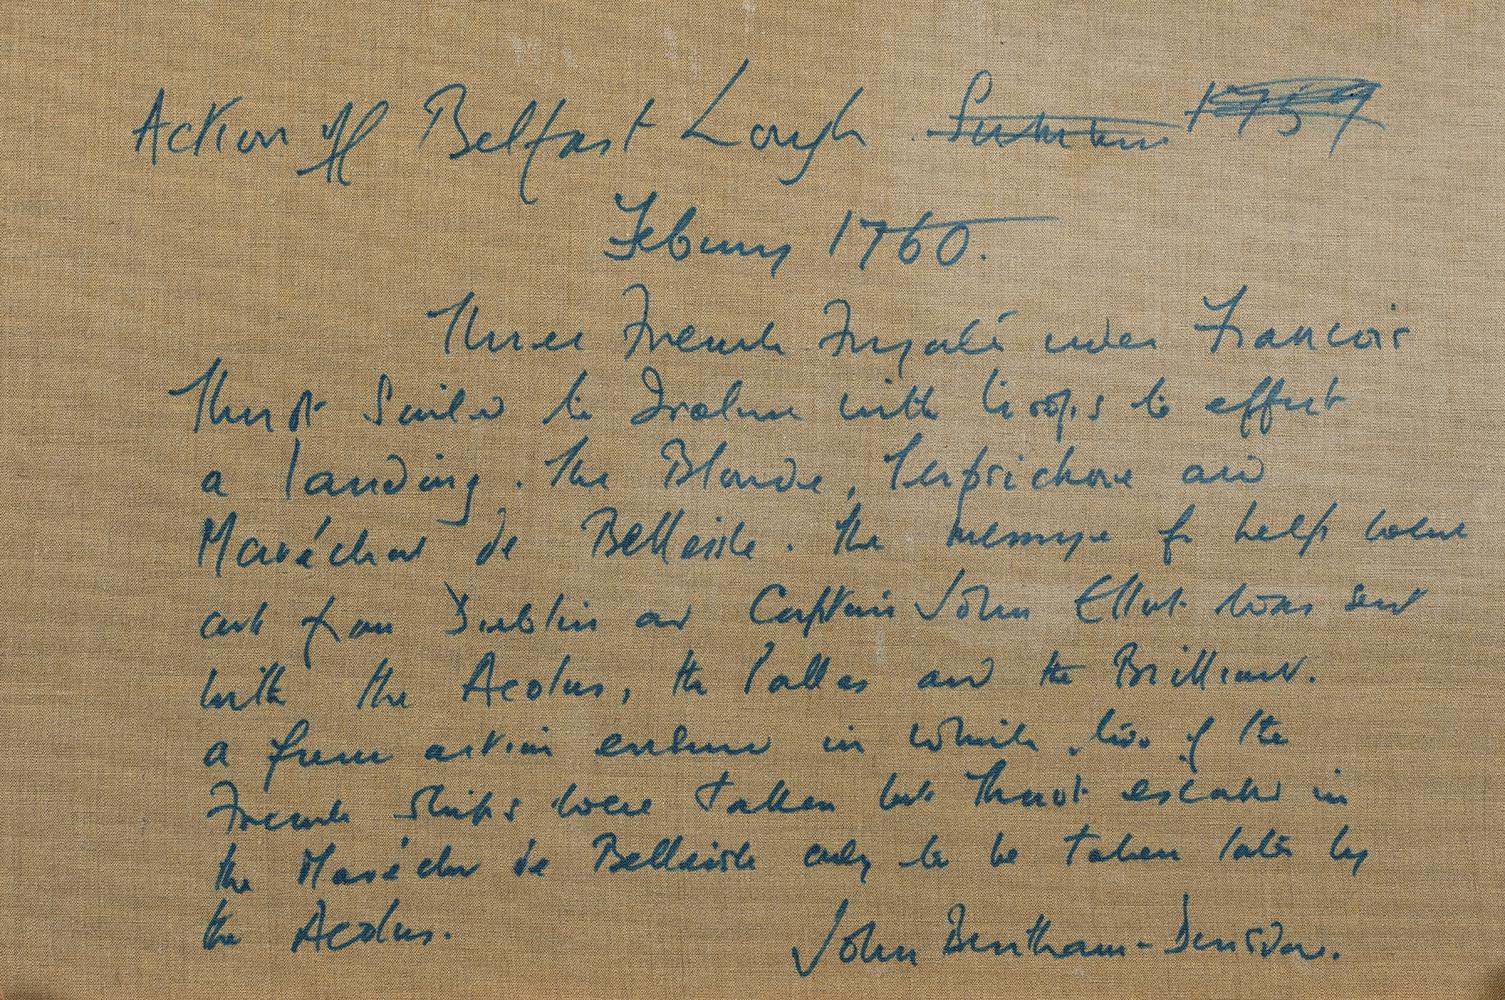 Action off Belfast Lough. Summer 1759
February 1760.
Three French Frigates under Francois
Thurot Sailed to Ireland with troops to effect
a landing. The Blonde, Terpsichore and
Maréchal de Belleisle. The message for help went
out from Dublin and Captain John Elliot was sent
with the Aeolus, the Pallas and the Brilliant.
a fierce action ensued in which two of the
French ships were taken but Thurot escaped in
the Maréchal de Belleisle only to be taken later by
the Aeolus.
John Bentham-Dinsdale.